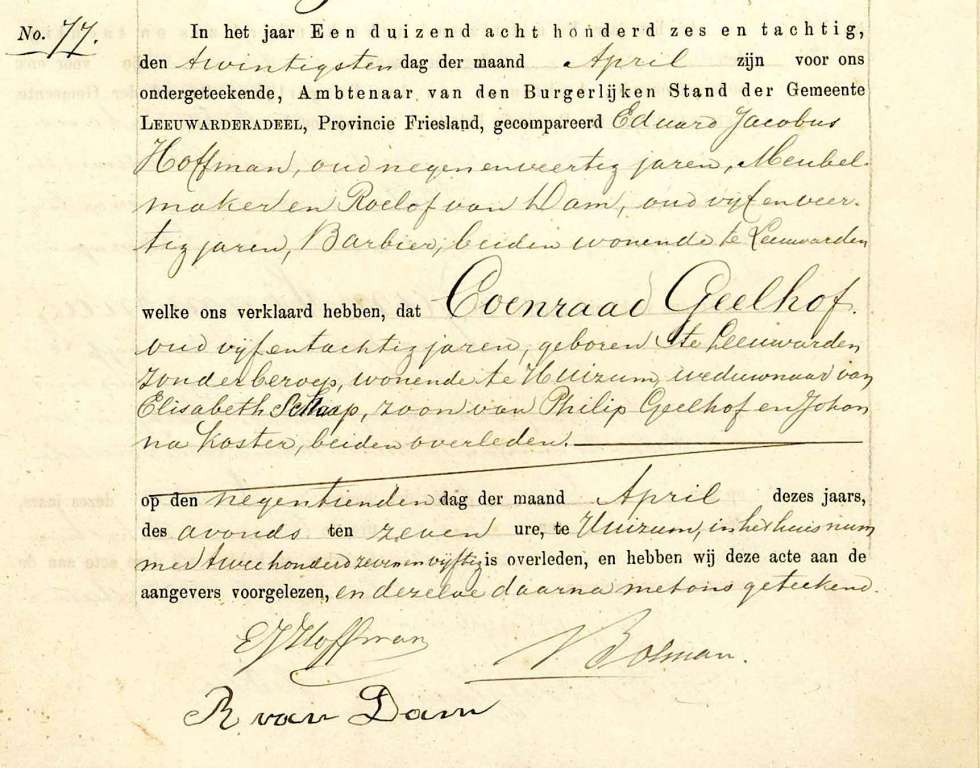 No. 77.
In het jaar Een duizend acht honderd zes en tachtig,
den twintigsten dag der maand April zijn voor ons
ondergeteekende, Ambtenaar van den Burgerlijken Stand der Gemeente
LEEUWARDERADEEL, Provincie Friesland, gecompareerd Eduard Jacobus
Hoffman, oud negen en veertig jaren, Meubel-
maker en Roelof van Dam, oud vijf en veer-
tig jaren, Barbier, beiden wonende te Leeuwarden
welke ons verklaard hebben, dat Coenraad Geelhof.
oud vijf en tachtig jaren, geboren te Leeuwarden
zonder beroep, wonende te Huizum, weduwnaar van
Elisabeth Schaap, zoon van Philip Geelhof en Johan
na Koster, beiden overleden.
op den negentienden dag der maand April dezes jaars,
des avonds ten zeven ure, te Huizum, in het huis num
mer tweehonderd zeven en vijftig is overleden, en hebben wij deze acte aan de
aangevers voorgelezen, en dezelve daarna met ons geteekend.
EJHoffman
Bolman.
R van Dam